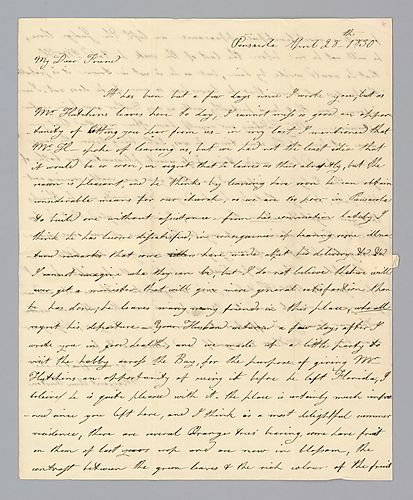 Pensacola April 28th 1830
My Dear Friend
It has been but a few days since I wrote you, but as
Mr Hutchens leaves here to day, I cannot miss so good an oppor
tunity of letting you hear from us – in my last I mentioned that
Mr H spoke of leaving us, but we had not the least idea that
it would be so soon, we regret that he leaves us thus abruptly, but the
season is pleasant, and he thinks by leaving here soon he can obtain
considerable means for our church, as we are too poor in Pensacola
to build one without assistance from his conversation lately I
think he has become dissatisfied, in consequence of hearing some illna
tured remarks that some have made about his delivery &c &c
I cannot imagine who they can be, but I do not believe that we will
ever get a minister that will give more general satisfaction than
he has done, he leaves many many friends in this place, who all
regret his departure – Your Husband returned a few days after I
wrote you in good health, and we made up a little party to
visit the hobby across the Bay, for the purpose of giving Mr
Hutchens an opportunity of seeing it before he left Florida, I
believe he is quite pleased with it. the place is actually much improv
=ed since you left here, and I think is a most delightful summer
residence, there are several Orange trees bearing, some have fruit
on them of last years crop and are now in blossom, the
contrast between the green leaves & the rich colour of the fruit